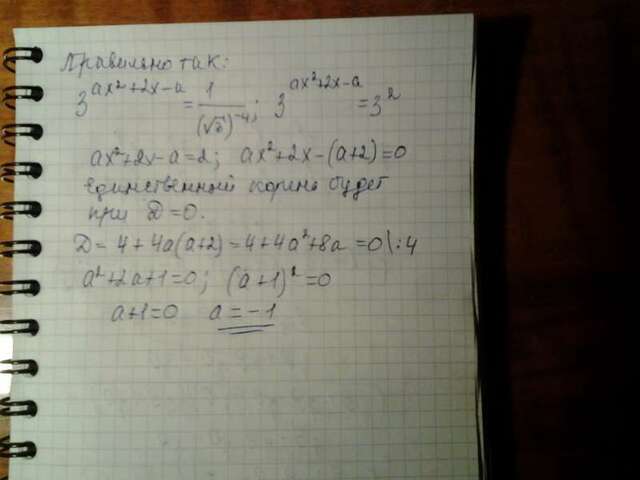 Правильно так:
3^(ax²+2x-a) = 1/(√3)^(-4); 3^(ax²+2x-a) = 3²
ax²+2x-a=2; ax²+2x-(a+2)=0
Единственный корень будет
при D=0.
D= 4+4a(a+2)=4+4a²+8a =0|:4
a²+2a+1=0; (a+1)²=0
a+1=0 a=-1